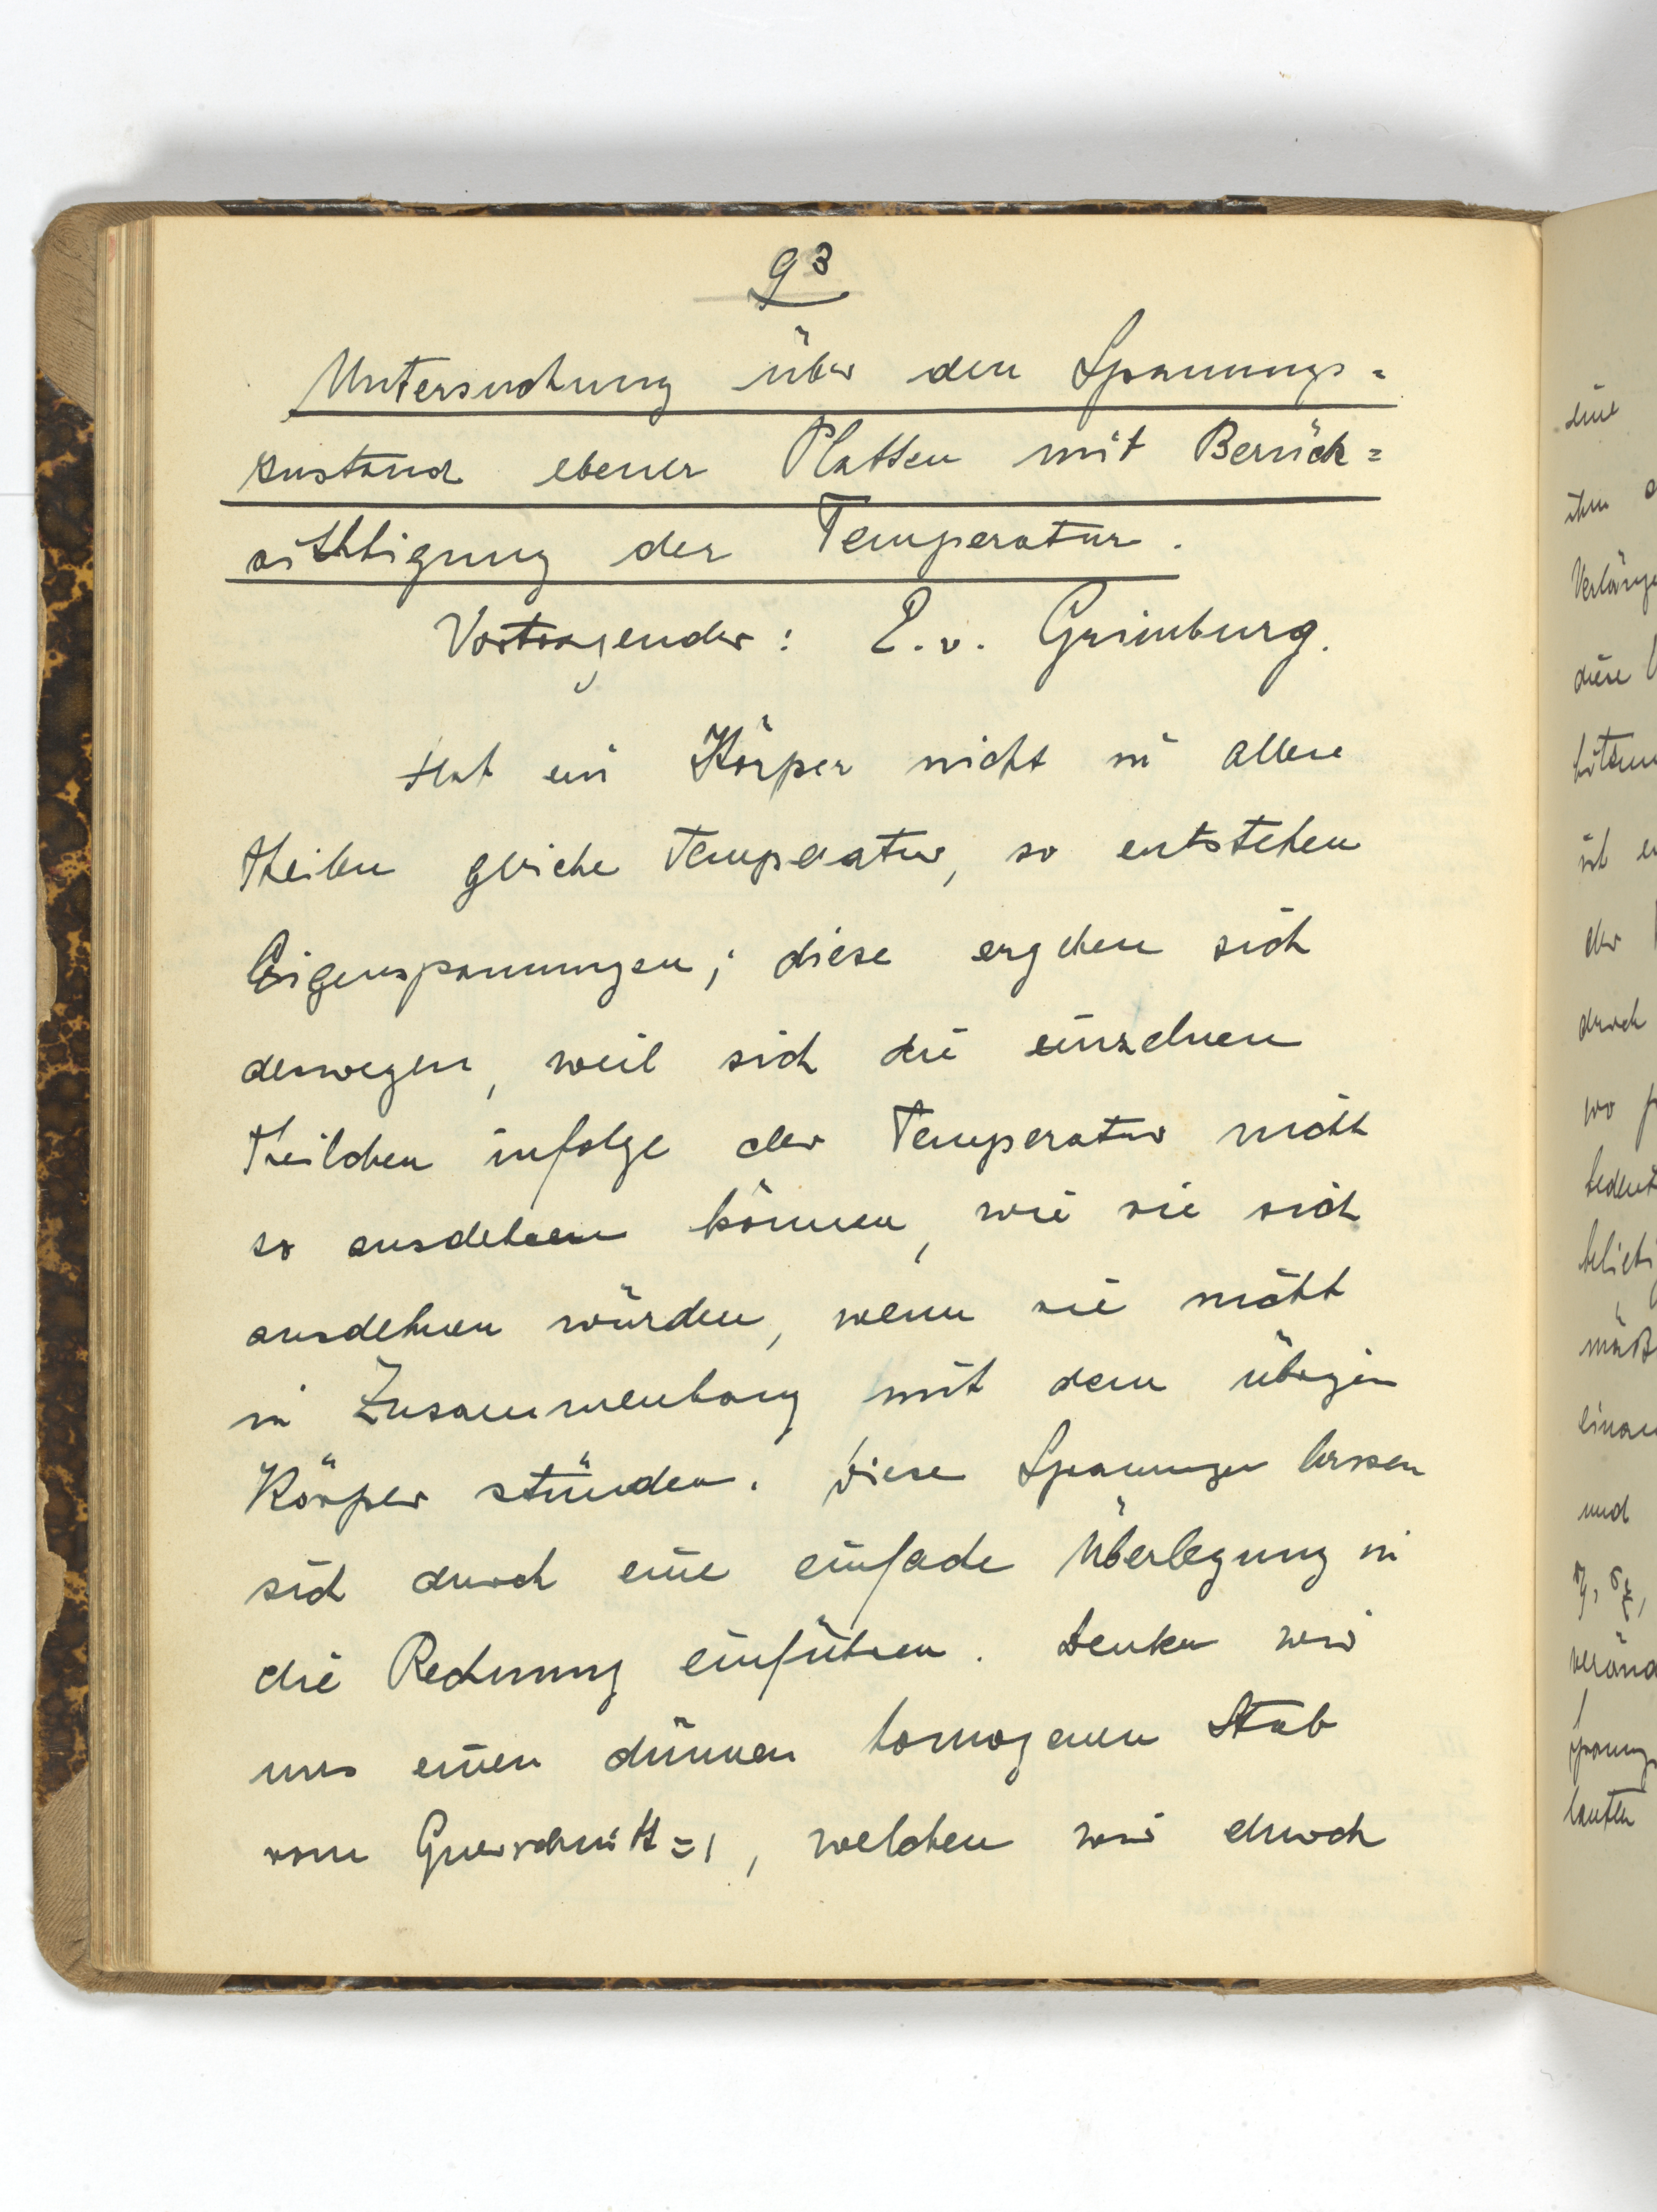 93
Untersuchung über den Spannungs=
zustand ebener Platten mit Berück=
sichtigung der Temperatur.
Vortragender: R. v. Grimburg.
Hat ein Körper nicht in allen
Theilen gleiche Temperatur, so entstehen
Eigenspannungen; diese ergeben sich
deswegen, weil sich die einzelnen
Theilchen infolge der Temperatur nicht
so ausdehnen können, wie sie sich
ausdehnen würden, wenn sie nicht
in Zusammenhang mit dem übrigen
Körper stünden. Diese Spannungen lassen
sich durch eine einfache Überlegung in
die Rechnung einführen. Denken wir
uns einen dünnen homogenen Stab
vom Querschnitt = 1, welchen wir durch
eine
ihm
diese
ist
der
durch
wo
und